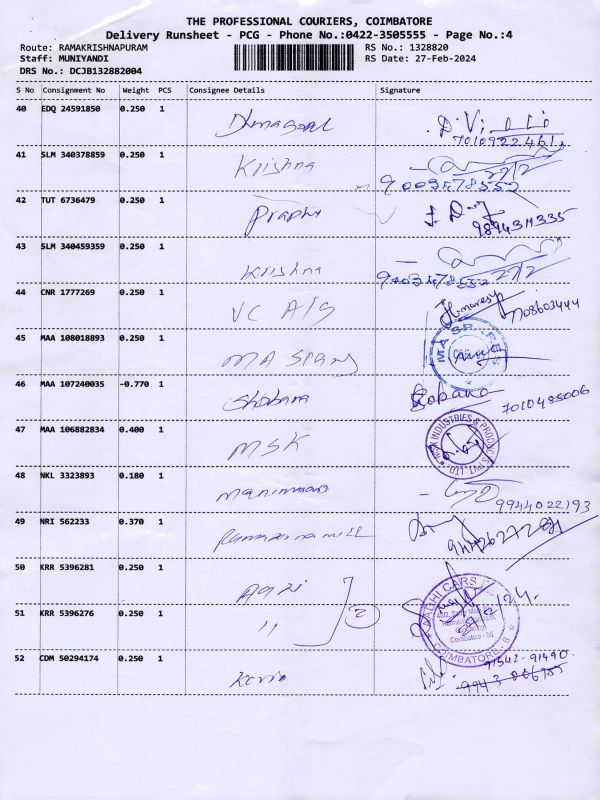 THE PROFESSIONAL COURIERS, COIMBATORE
Delivery Runsheet - PCG - Phone No.:0422-3505555 - Page No.:4
Route: RAMAKRISHNAPURAM RS No.: 1328820
Staff: MUNIYANDI RS Date: 27-Feb-2024
DRS No.: DCJB132882004
S No Consignment No Weight PCS Consignee Details Signature
40 EDQ 24591850 0.250 1
7010922461
41 SLM 340378859 0.250 1 Krishna 27/2
9003478552
42 TUT 6736479 0.250 1 Prabhu
9894311335
43 SLM 340459359 0.250 1 Krishna 27/2
9003478552
44 CNR 1777269 0.250 1 VC A/S
7708603444
45 MAA 108018893 0.250 1 MA Spares MA SPARES
46 MAA 107240035 -0.770 1 Shobana Sobana
7010485006
47 MAA 106882834 0.400 1 MSK MSK INDUSTRIES & PRODUCTS PVT LTD
48 NKL 3323893 0.180 1
9944022193
49 NRI 562233 0.370 1
50 KRR 5396281 0.250 1 CARS
51 KRR 5396276 0.250 1 11 2
Coimbatore - 06
COIMBATORE - 6
52 CDM 50294174 0.250 1 Kevin 91542-91490